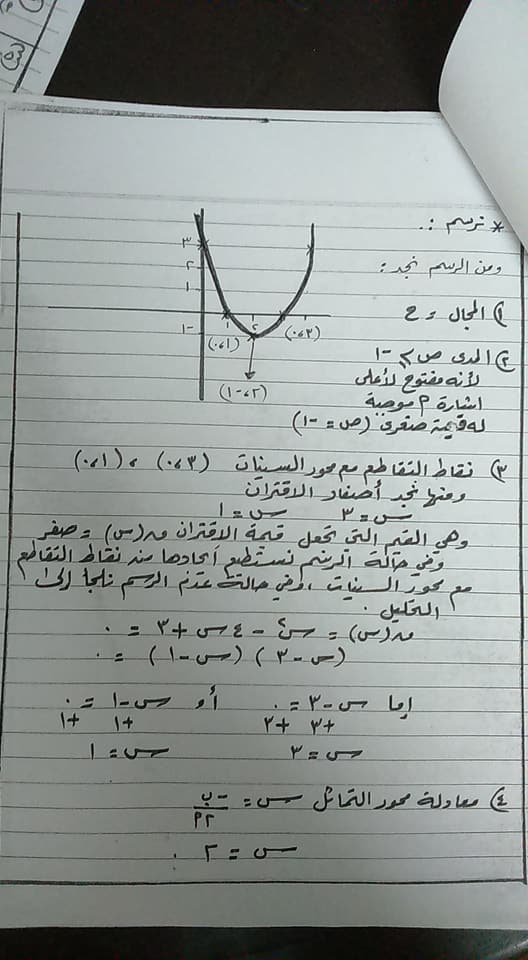 * نرسم :.
ومن الرسم نجد:
٣
٢
١
١-
١
٢
(٠،١)
(٠،٣)
(١-،٢)
١) المجال = ح
٢) المدى ص ≥ -١
لأنه مفتوح لأعلى
اشارة أ موجبة
له قيمة صغرى (ص = -١)
٣) نقاط التقاطع مع محور السينات (٠،٣) ، (٠،١)
ومنها نجد أصفار الاقتران
س = ٣ س = ١
وهي القيم التي تجعل قيمة الاقتران ق(س) = صفر
وفي حالة الرسم نستطيع ايجادها من نقاط التقاطع
مع محور السينات ، وفي حالة عدم الرسم نلجأ إلى
التحليل .
ق(س) = س٢ - ٤س + ٣ = ٠
(س - ٣) (س - ١) = ٠
إما س - ٣ = ٠ أو س - ١ = ٠
+٣ +٣ +١ +١
س = ٣ س = ١
٤) معادلة محور التماثل س = -ب/٢أ
س = ٢ .